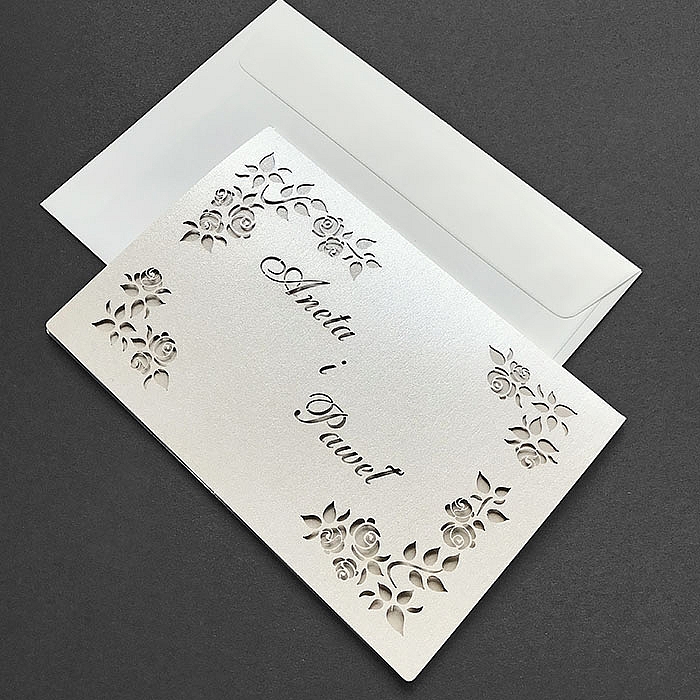 Aneta
i
Paweł